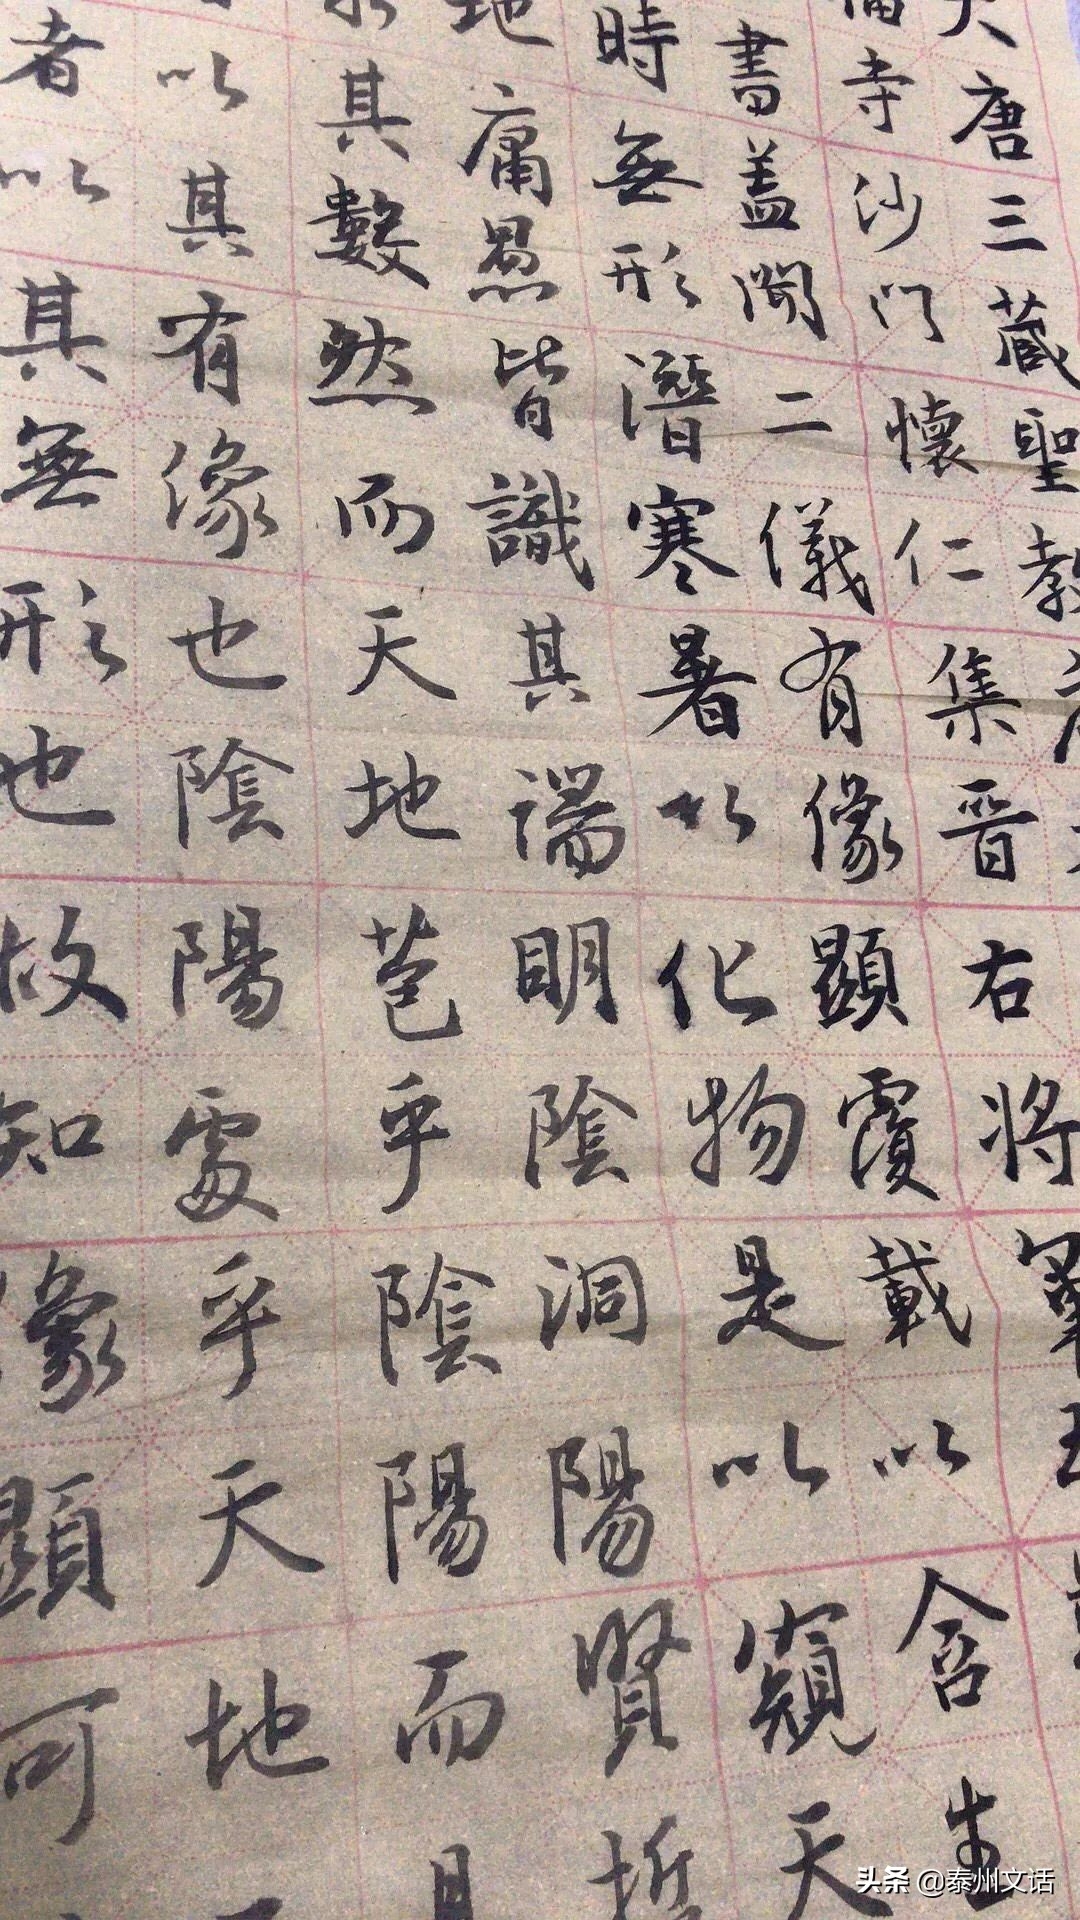 大唐三藏聖教序
福寺沙門懷仁集晉右將軍王
書盖聞二儀有像顯覆載以含生
時無形潛寒暑以化物是以窺天
地庸愚皆識其端明陰洞陽賢哲
其數然而天地苞乎陰陽而
以其有像也陰陽處乎天地
者以其無形也故知像顯可
头条 @泰州文话